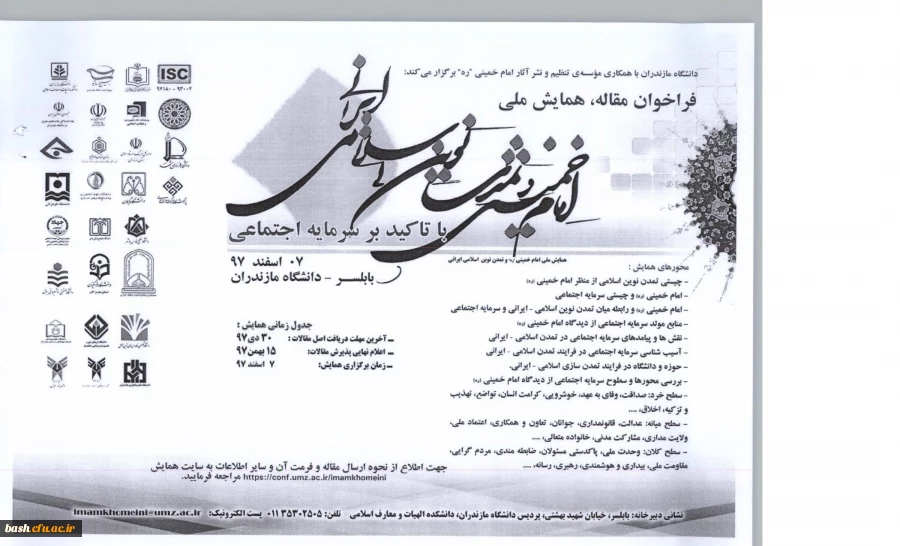 دانشگاه مازندران با همکاری مؤسسه‌ی تنظیم و نشر آثار امام خمینی "ره" برگزار می‌کند:
فراخوان مقاله، همایش ملی
امام خمینی و تمدن نوین اسلامی ایرانی
با تاکید بر سرمایه اجتماعی
همایش ملی امام خمینی (ره) و تمدن نوین اسلامی ایرانی
۰۷ اسفند ۹۷
بابلسر - دانشگاه مازندران
محورهای همایش :
- چیستی تمدن نوین اسلامی از منظر امام خمینی (ره)
- امام خمینی (ره) و چیستی سرمایه اجتماعی
- امام خمینی (ره) و رابطه میان تمدن نوین اسلامی - ایرانی و سرمایه اجتماعی
- منابع مولد سرمایه اجتماعی از دیدگاه امام خمینی (ره)
- نقش ها و پیامدهای سرمایه اجتماعی در تمدن اسلامی - ایرانی
- آسیب شناسی سرمایه اجتماعی در فرایند تمدن اسلامی - ایرانی
- حوزه و دانشگاه در فرایند تمدن سازی اسلامی - ایرانی.
- بررسی محورها و سطوح سرمایه اجتماعی از دیدگاه امام خمینی (ره)
- سطح خرد: صداقت، وفای به عهد، خوشرویی، کرامت انسان، تواضع، تهذیب
و تزکیه، اخلاق، ....
- سطح میانه: عدالت، قانونمداری، جوانان، تعاون و همکاری، اعتماد ملی،
ولایت مداری، مشارکت مدنی، خانواده متعالی، ....
- سطح کلان: وحدت ملی، پاکدستی مسئولان، ضابطه مندی، مردم گرایی،
مقاومت ملی، بیداری و هوشمندی، رهبری، رسانه، ....
جدول زمانی همایش :
- آخرین مهلت دریافت اصل مقالات : ۳۰ دی ۹۷
- اعلام نهایی پذیرش مقالات: ۱۵ بهمن ۹۷
- زمان برگزاری همایش: ۷ اسفند ۹۷
ISC
۹۷۱۸۰ - ۹۳۰۰۲
جهت اطلاع از نحوه ارسال مقاله و فرمت آن و سایر اطلاعات به سایت همایش
https://conf.umz.ac.ir/imamkhomeini مراجعه فرمایید.
نشانی دبیرخانه: بابلسر، خیابان شهید بهشتی، پردیس دانشگاه مازندران، دانشکده الهیات و معارف اسلامی تلفن: ۰۱۱۳۵۳۰۲۵۰۵ پست الکترونیک: imamkhomeini@umz.ac.ir
bash.cfu.ac.ir